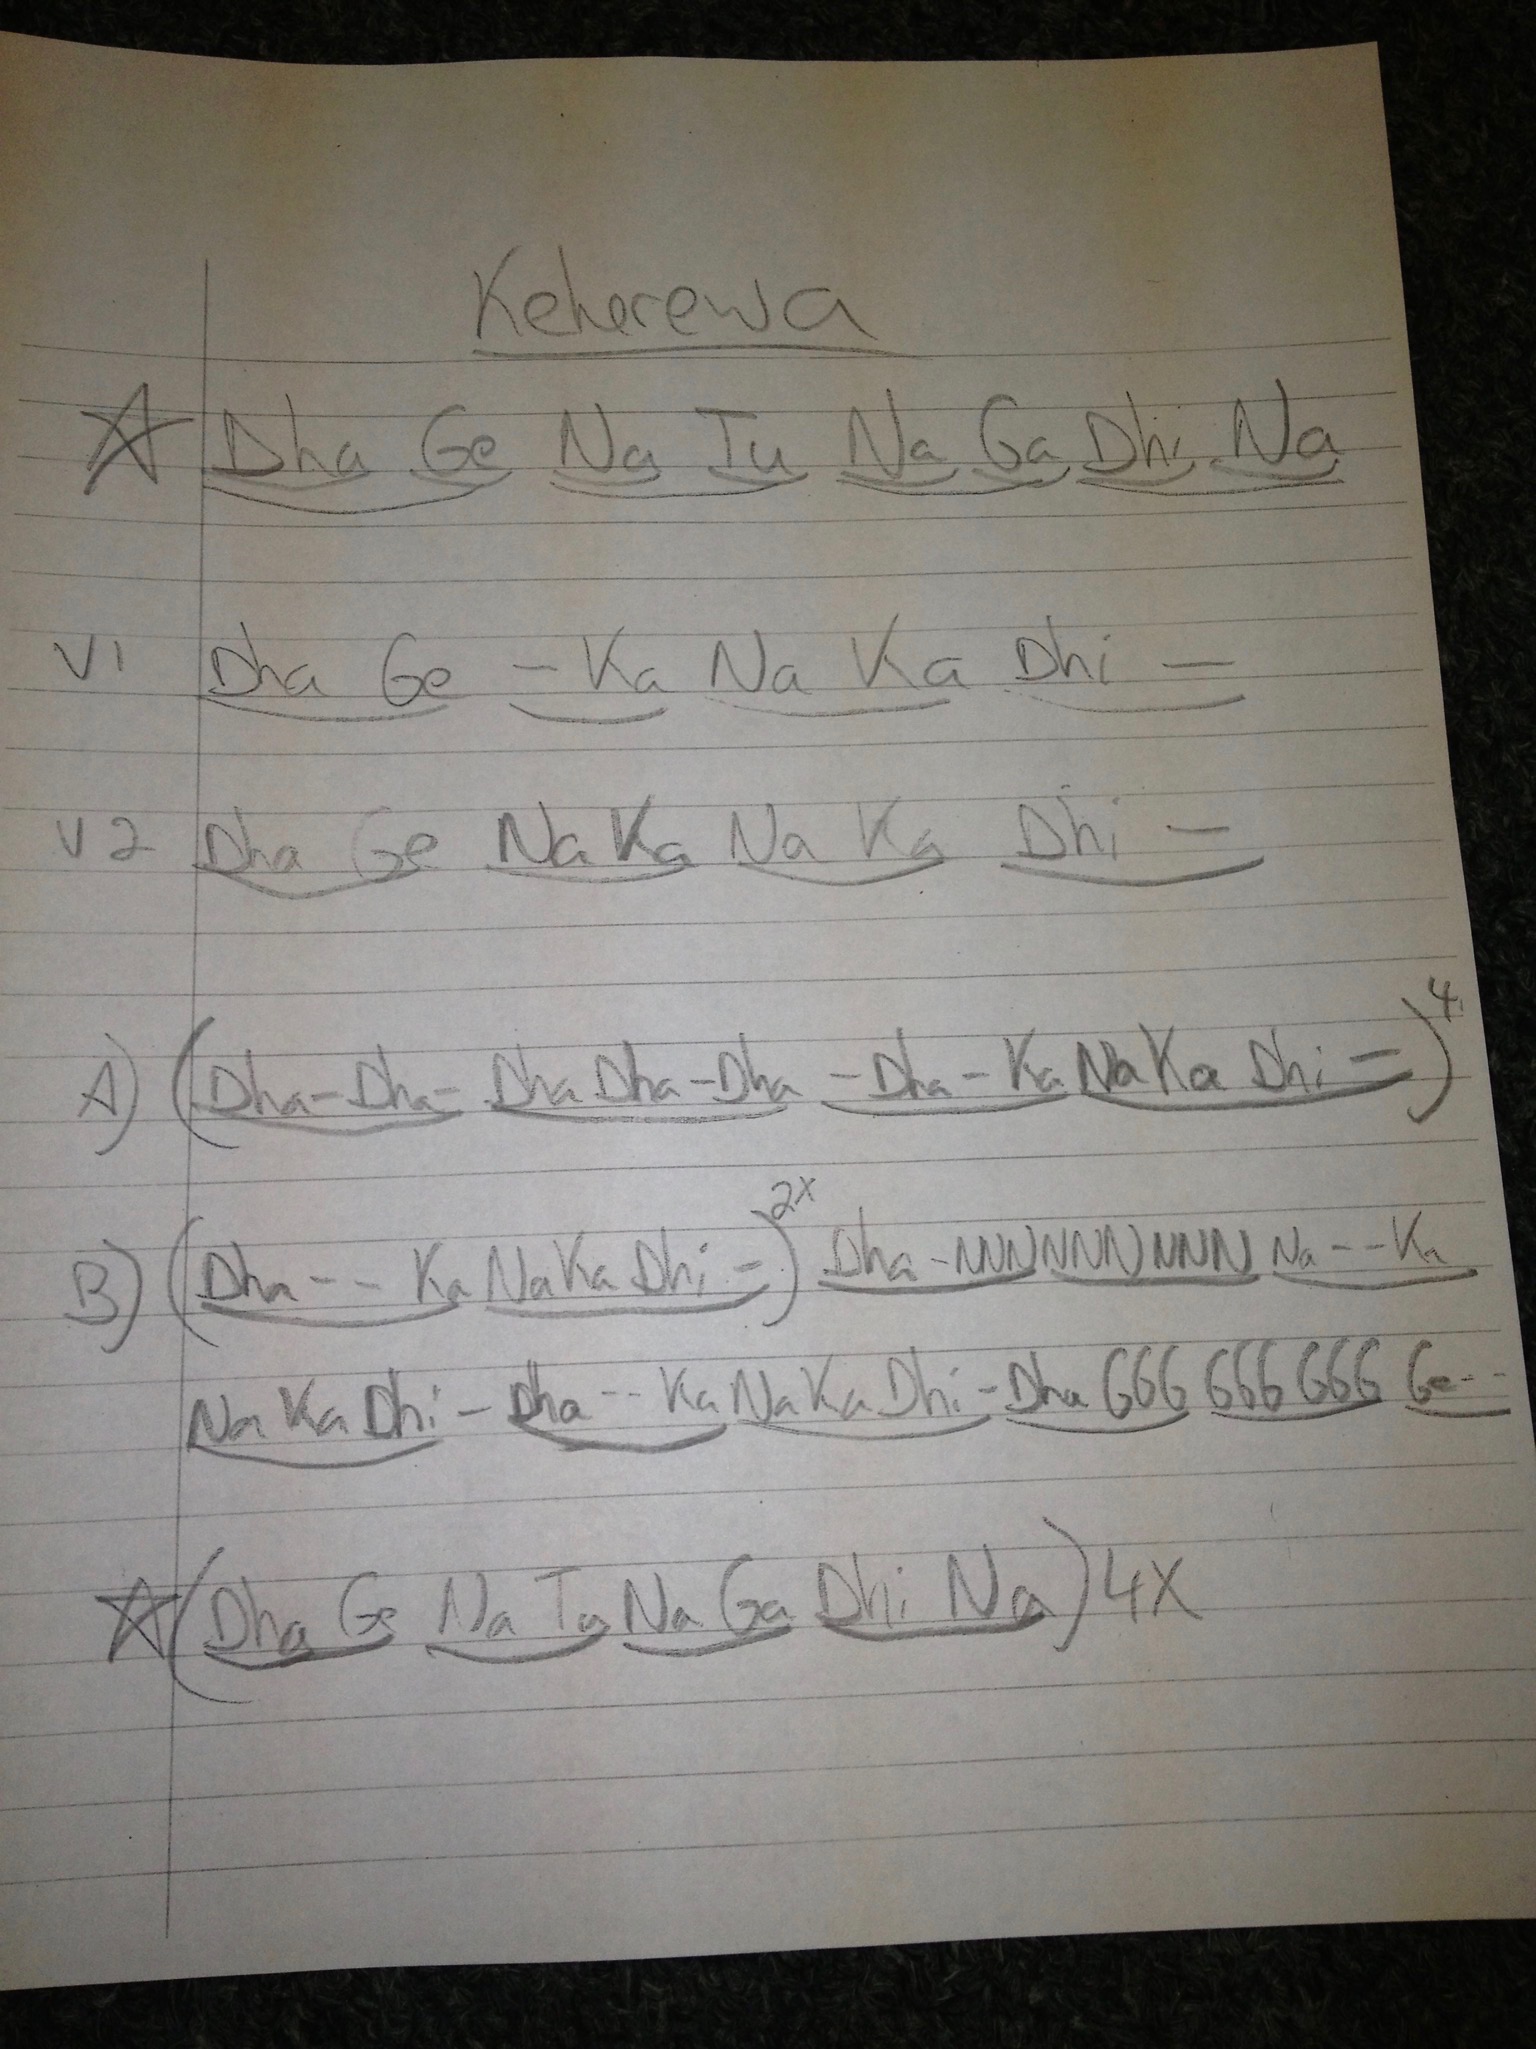 Keherewa
☆ Dha Ge Na Tu Na Ga Dhi Na
V1 Dha Ge - Ka Na Ka Dhi -
V2 Dha Ge Na Ka Na Ka Dhi -
A) (Dha - Dha - Dha Dha - Dha - Dha - Ka Na Ka Dhi -)4
B) (Dha - - Ka Na Ka Dhi -)2x Dha - NNN NNN NNN Na - - Ka
Na Ka Dhi - Dha - - Ka Na Ka Dhi - Dha GGG GGG GGG Ge - -
☆ (Dha Ge Na Tu Na Ga Dhi Na) 4X